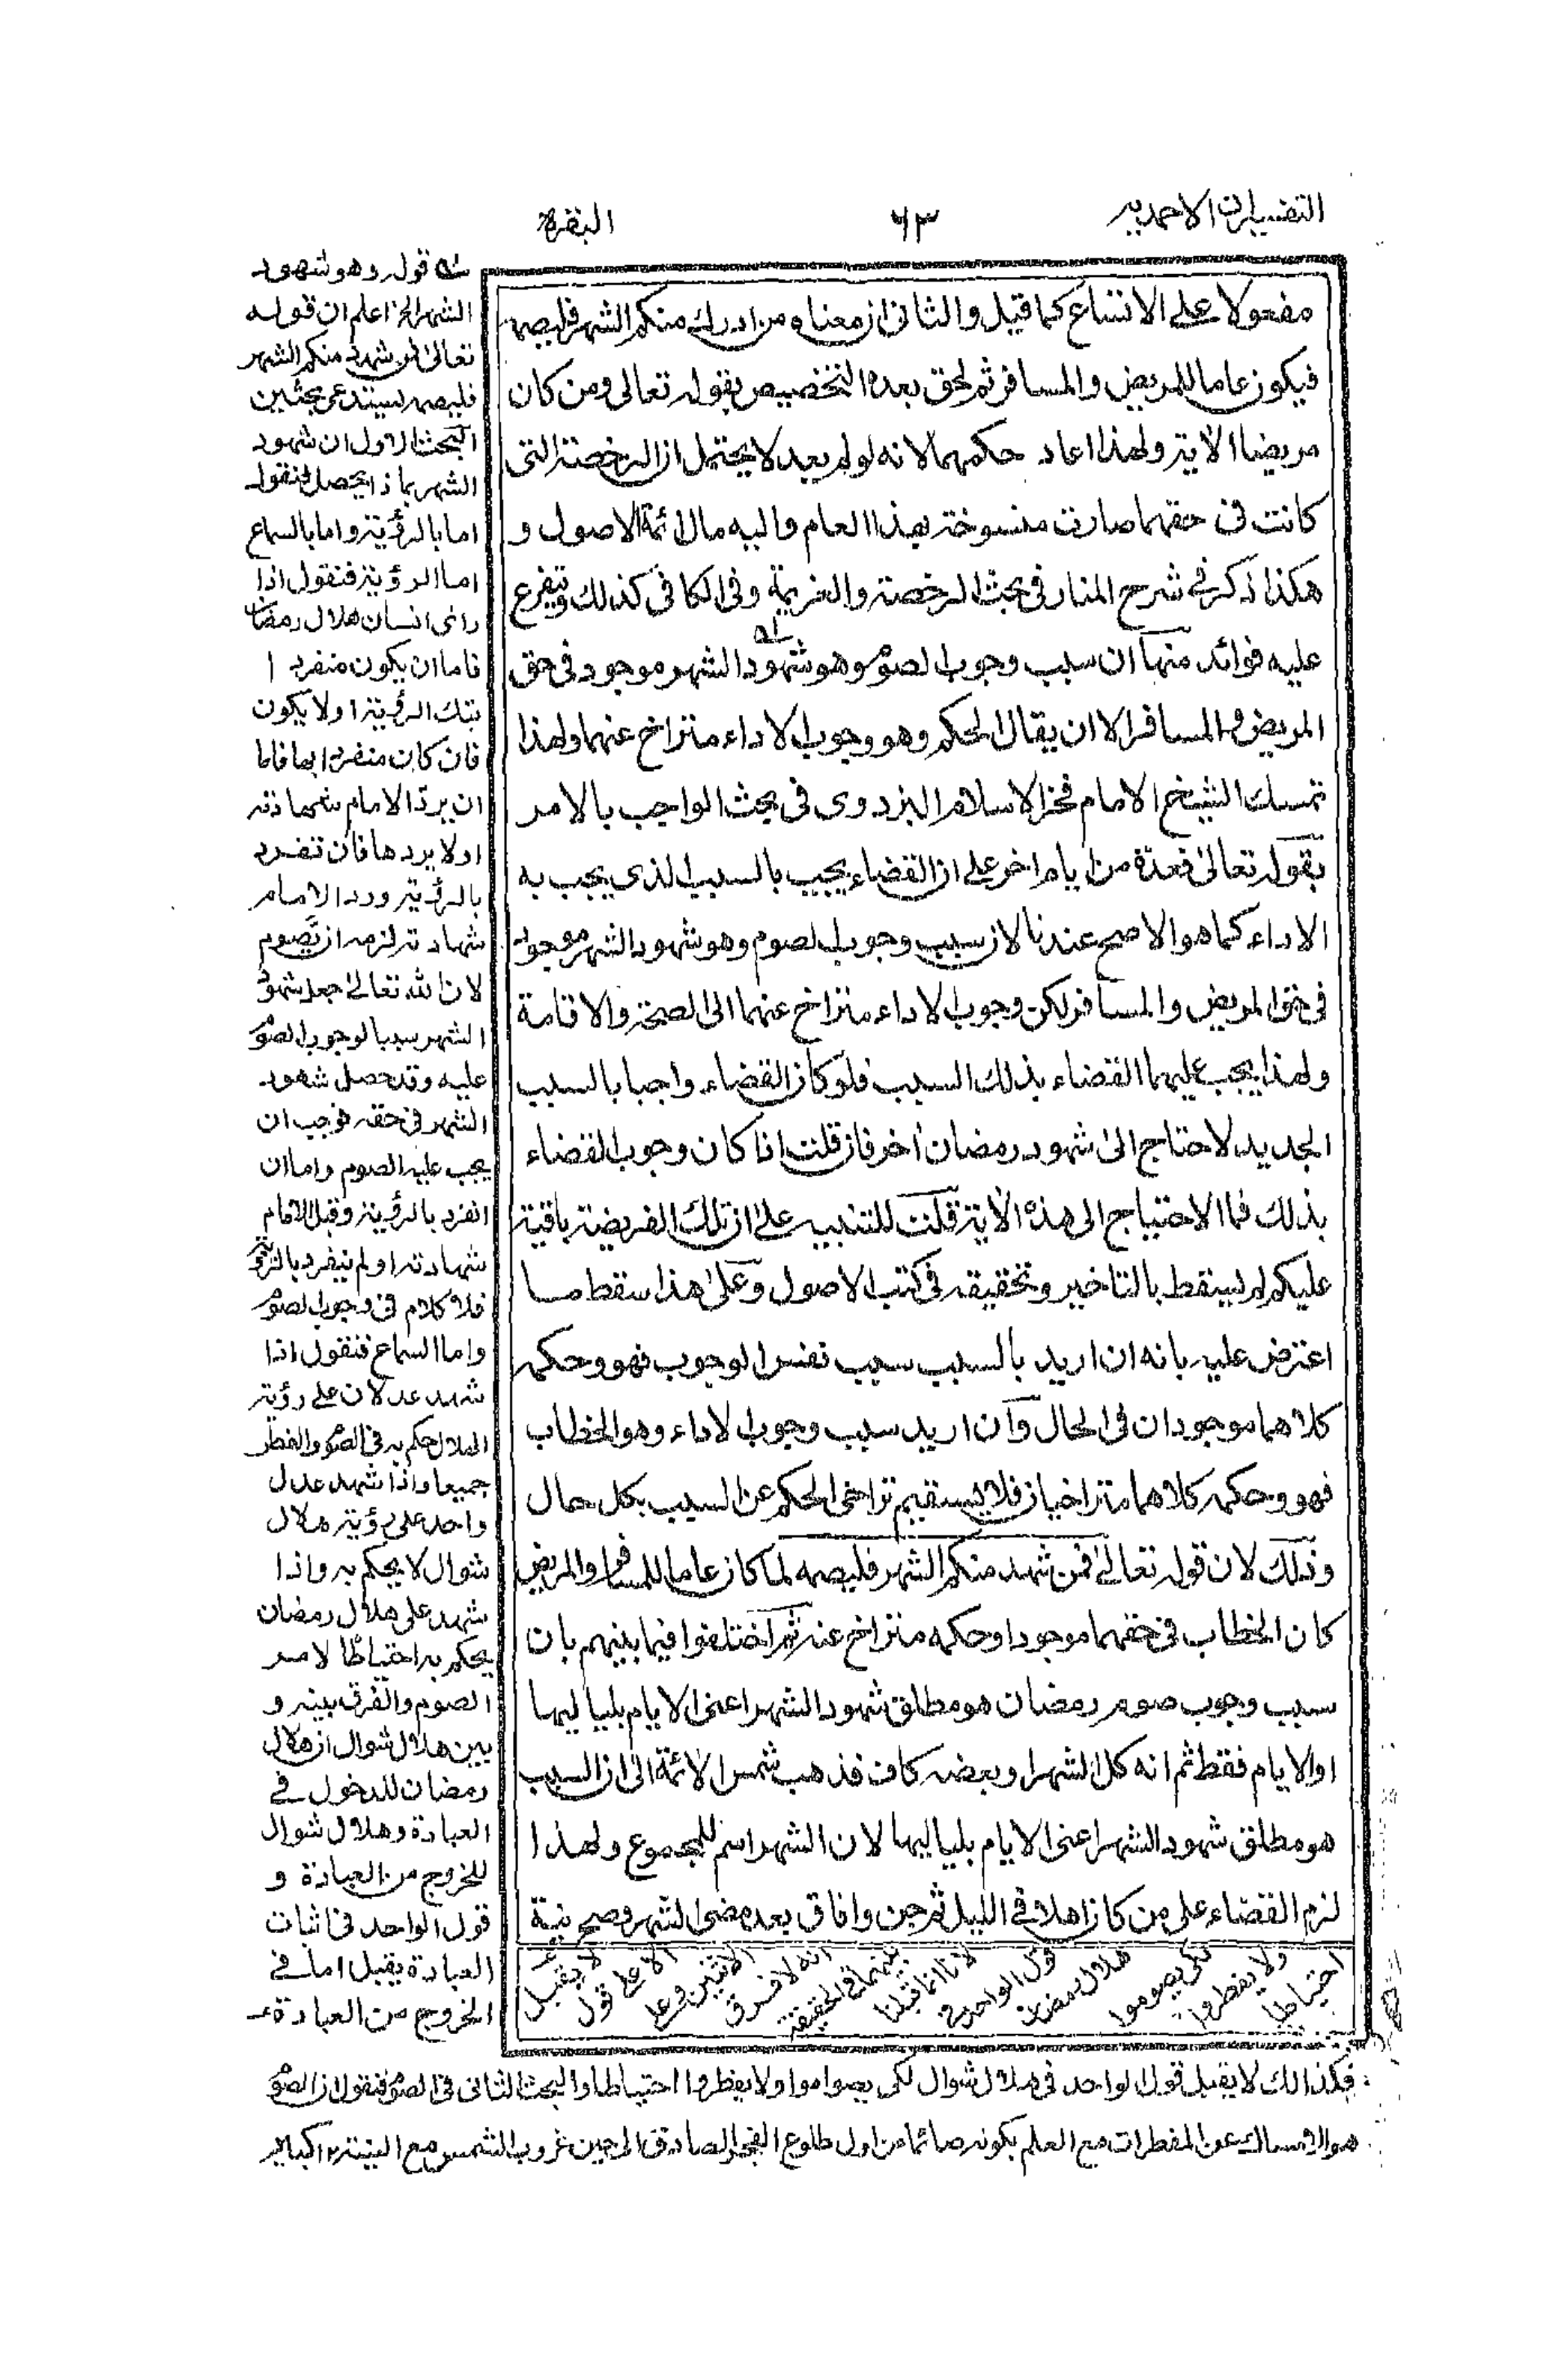 التفسيرات الاحمدية
٦٣
البقرة
مفعولا على الاتساع كما قيل والثانى ان معناه ومن ادرك منكم الشهر فليصمه
فيكون عاما للمريض والمسافر ثم لحق بعده التخصيص بقوله تعالى ومن كان
مريضا الاية ولهذا اعاد حكمهما لانه لو لم يعد لا يحتمل ان الرخصة التى
كانت فى حقهما صارت منسوخة بهذا العام واليه مال ائمة الاصول و
هكذا ذكر فى شرح المنار فى بحث الرخصة والعزيمة وفى الكافى كذلك ويتفرع
عليه فوائد منها ان سبب وجوب الصوم وهو شهود الشهر موجود فى حق
المريض والمسافر الا ان يقال الحكم وهو وجوب الاداء متراخ عنهما ولهذا
تمسك الشيخ الامام فخر الاسلام البزدوى فى بحث الواجب بالامر
بقوله تعالىٰ فعدة من ايام اخر على ان القضاء يجب بالسبب الذى يجب به
الاداء كما هو الاصح عندنا لان سبب وجوب الصوم وهو شهود الشهر موجود
فى حق المريض والمسافر لكن وجوب الاداء متراخ عنهما الى الصحة والاقامة
ولهذا يجب عليهما القضاء بذلك السبب فلو كان القضاء واجبا بالسبب
الجديد لاحتاج الىٰ شهود رمضان اٰخر فان قلت اذا كان وجوب القضاء
بذلك فما الاحتياج الى هذه الاٰية قلت للتنبيه علىٰ ان تلك الفريضة باقية
عليكم لم يسقط بالتاخير وتحقيقه فى كتب الاصول وعلىٰ هذا سقط ما
اعترض عليه بانه ان اريد بالسبب سبب نفس الوجوب فهو وحكمه
كلاهما موجودان فى الحال وان اريد سبب وجوب الاداء وهو الخطاب
فهو وحكمه كلاهما متراخيان فلا يستقيم تراخى الحكم عن السبب بكل حال
وذلك لان قوله تعالىٰ فمن شهد منكم الشهر فليصمه لما كان عاما للمسافر والمريض
كان الخطاب فى حقهما موجودا وحكمه متراخ عنه ثم اختلفوا فيما بينهم بان
سبب وجوب صوم رمضان هو مطلق شهود الشهر اعنى الايام بلياليها
او الايام فقط ثم انه كل الشهر او بعضه كاف فذهب شمس الائمة الى ان السبب
هو مطلق شهود الشهر اعنى الايام بلياليها لان الشهر اسم للمجموع ولهذا
لزم القضاء على من كان اهلا فى الليل ثم جن وافاق بعد مضى الشهر وصح نية
قوله وهو شهود
الشهر الخ اعلم ان قوله
تعالىٰ فمن شهد منكم الشهر
فليصمه يستدعى بحثين
البحث الاول ان شهود
الشهر بماذا يحصل فنقول
اما بالرؤية واما بالسماع
اما الرؤية فنقول اذا
راٰى انسان هلال رمضان
فاما ان يكون منفردا
بتلك الرؤية او لا يكون
فان كان منفردا بها فاما
ان يرد الامام شهادته
او لا يردها فان تفرد
بالرؤية ورد الامام
شهادته لزمه ان يصوم
لان الله تعالىٰ جعل شهود
الشهر سببا لوجوب الصوم
عليه وقد حصل شهود
الشهر فى حقه فوجب ان
يجب عليه الصوم واما ان
انفرد بالرؤية وقبل الامام
شهادته او لم ينفرد بالرؤية
فلا كلام فى وجوب الصوم
واما السماع فنقول اذا
شهد عدلان على رؤية
الهلال حكم به فى الصوم والفطر
جميعا واذا شهد عدل
واحد على رؤية هلال
شوال لا يحكم به واذا
شهد على هلال رمضان
يحكم به احتياطا لامر
الصوم والفرق بينه و
بين هلال شوال ان هلال
رمضان للدخول فى
العبادة وهلال شوال
للخروج من العبادة و
قول الواحد فى اثبات
العبادة يقبل اما فى
الخروج من العبادة
لا يقبل
الا على قول
الاثنين
انه لا فرق
بينهما فى الحقيقة
لانا انما قبلنا
قول الواحد فى
هلال رمضان
لكى يصوموا
ولا يفطروا
احتياطا
فكذالك لا يقبل قول الواحد فى هلال شوال لكى يصواموا ولا يفطروا احتياطا والبحث الثانى فى الصوم فنقول ان الصوم
هو الامساك عن المفطرات مع العلم بكونه صائما من اول طلوع الفجر الصادق الى حين غروب الشمس مع النية ١٢